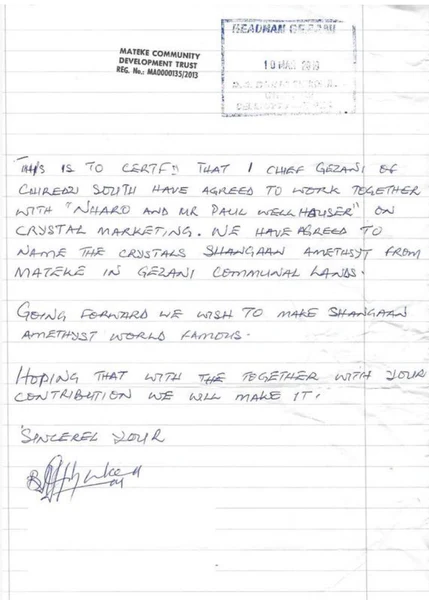 MATEKE COMMUNITY
DEVELOPMENT TRUST
REG. No.: MA0000135/2013
HEADMAN GEZANI
THIS IS TO CERTFY THAT I CHIEF GEZANI OF
CHIREDZI SOUTH HAVE AGREED TO WORK TOGETHER
WITH "NHARO AND MR PAUL WELLHAUSER" ON
CRYSTAL MARKETING. WE HAVE AGREED TO
NAME THE CRYSTALS SHANGAAN AMETHYST FROM
MATEKE IN GEZANI COMMUNAL LANDS.
GOING FORWARD WE WISH TO MAKE SHANGAAN
AMETHYST WORLD FAMOUS.
HOPING THAT WITH THE TOGETHER WITH YOUR
CONTRIBUTION WE WILL MAKE IT.
SINCEREL YOUR